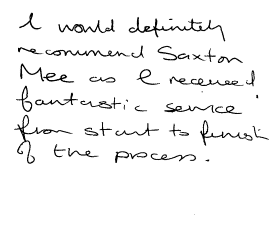 I would definitely
recommend Saxton
Mee as I received
fantastic service
from start to finish
of the process.